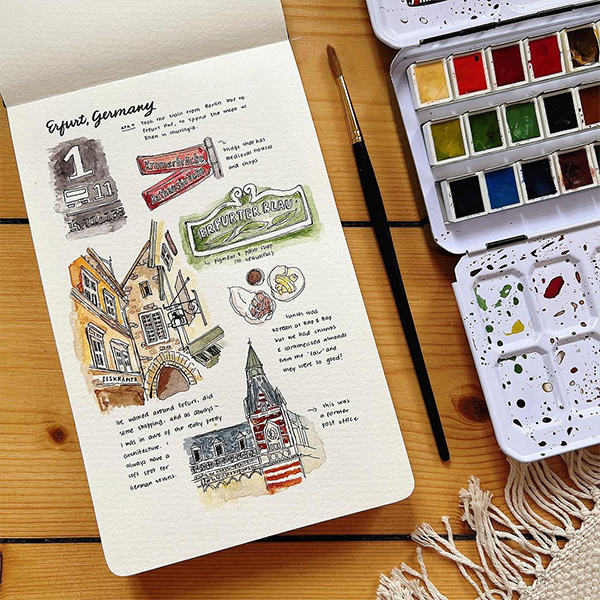 Erfurt, Germany
APR 4 Took the train from Berlin Hbf to
Erfurt Hbf, to spend the week w/
Ellen in Thuringia.
1
11
Krämerbrücke
Rathausbrücke
bridge that has
medieval houses
and shops
ERFURTER BLAU
↳ pigment & paint shop
(so beautiful)
EISKRÄMER
lunch was
korean at Bap & Bap
but we had churros
& caramelised almonds
from the "fair" and
they were so good!
We walked around Erfurt, did
some shopping, and as always -
I was in awe of the really pretty
architecture. I
always have a
soft spot for
German towns.
→ this was
a former
post office